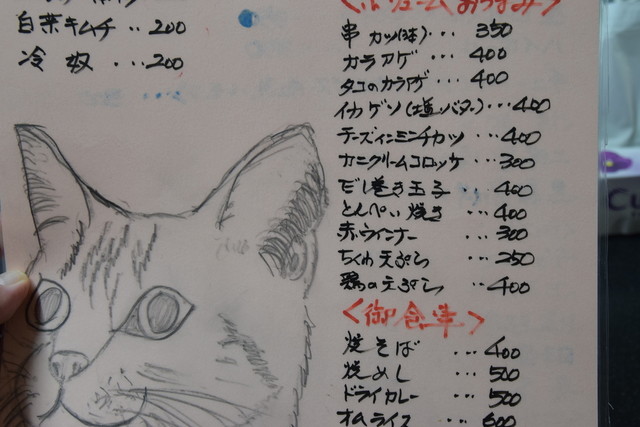 白菜キムチ‥200
冷奴…200
<ボリュームおつまみ>
串カツ(3本)…350
カラアゲ…400
タコのカラアゲ…400
イカゲソ(塩、バター)…400
チーズインミンチカツ…400
カニクリームコロッケ…300
だし巻き玉子…400
とんぺい焼き…400
赤ウインナー…300
ちくわ天ぷら…250
鶏の天ぷら…400
<御食事>
焼そば…400
焼めし…500
ドライカレー…500
オムライス…600